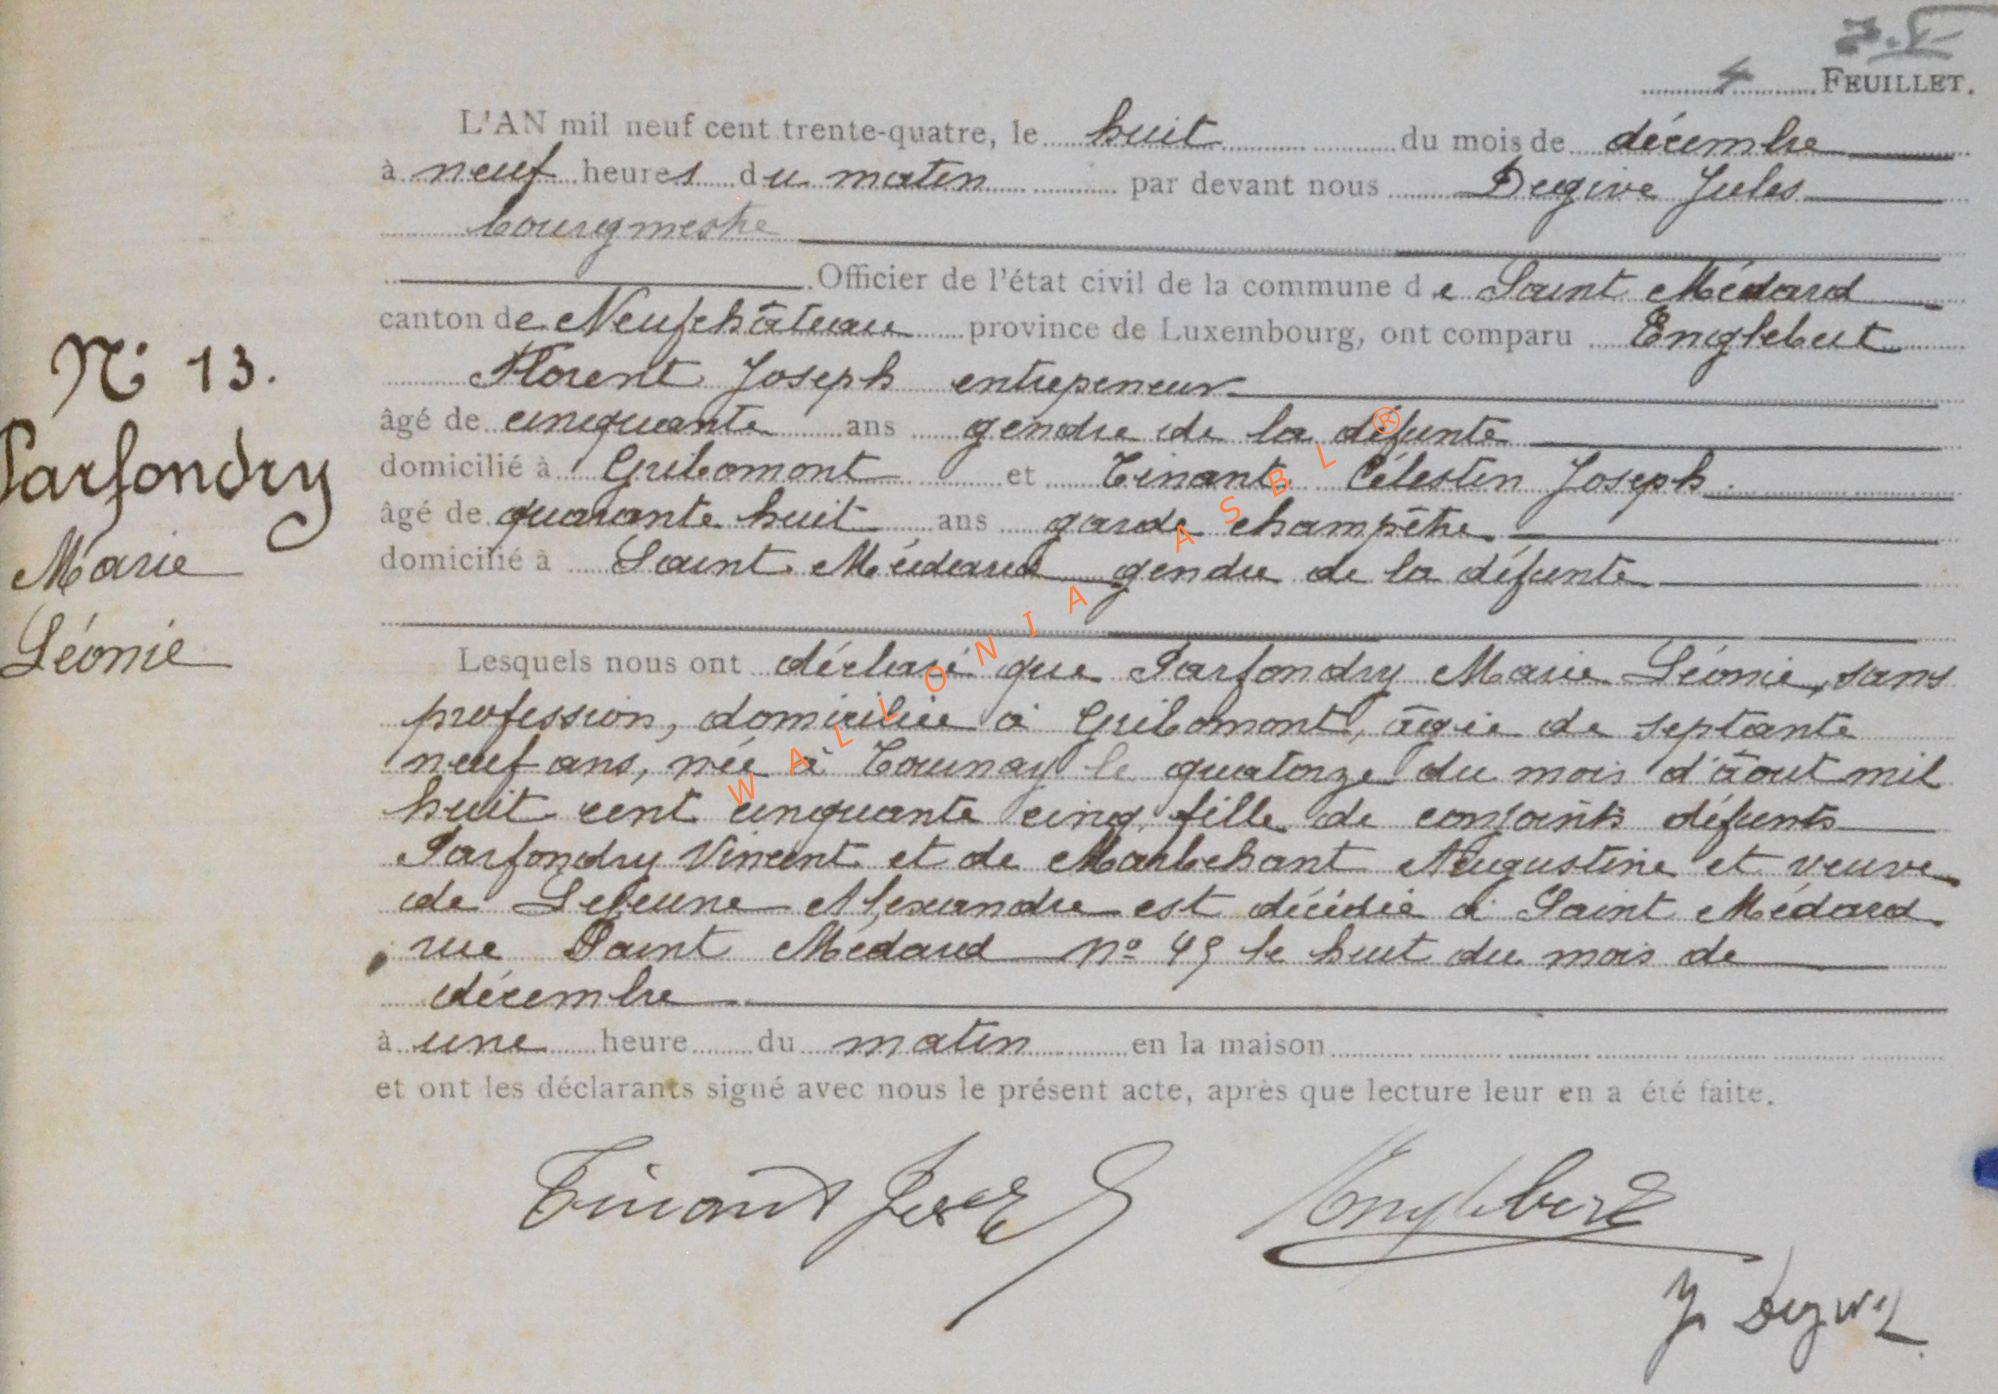 4 FEUILLET.
L'AN mil neuf cent trente-quatre, le huit du mois de décembre
à neuf heures du matin par devant nous Dugive Jules
bourgmestre
Officier de l'état civil de la commune de Saint Médard
canton de Neufchâteau province de Luxembourg, ont comparu Englebert
Florent Joseph entrepeneur
âgé de cinquante ans gendre de la défunte
domicilié à Gribomont et Tinant Célestin Joseph
âgé de quarante huit ans garde champêtre
domicilié à Saint Médard gendre de la défunte
N° 13.
Parfondry
Marie
Léonie
Lesquels nous ont déclaré que Parfondry Marie Léonie, sans
profession, domiciliée à Gribomont, âgée de septante
neuf ans, née à Tournay le quatorze du mois d'âout mil
huit cent cinquante cinq, fille de conjoints défunts
Parfondry Vincent et de Marbehant Augustine et veuve
de Lejeune Alexandre est décédée à Saint Médard
rue Saint Médard n° 49 le huit du mois de
décembre
à une heure du matin en la maison
et ont les déclarants signé avec nous le présent acte, après que lecture leur en a été faite.
Tinant Englebert
J. Dugive
WALLONIA ASBL ®